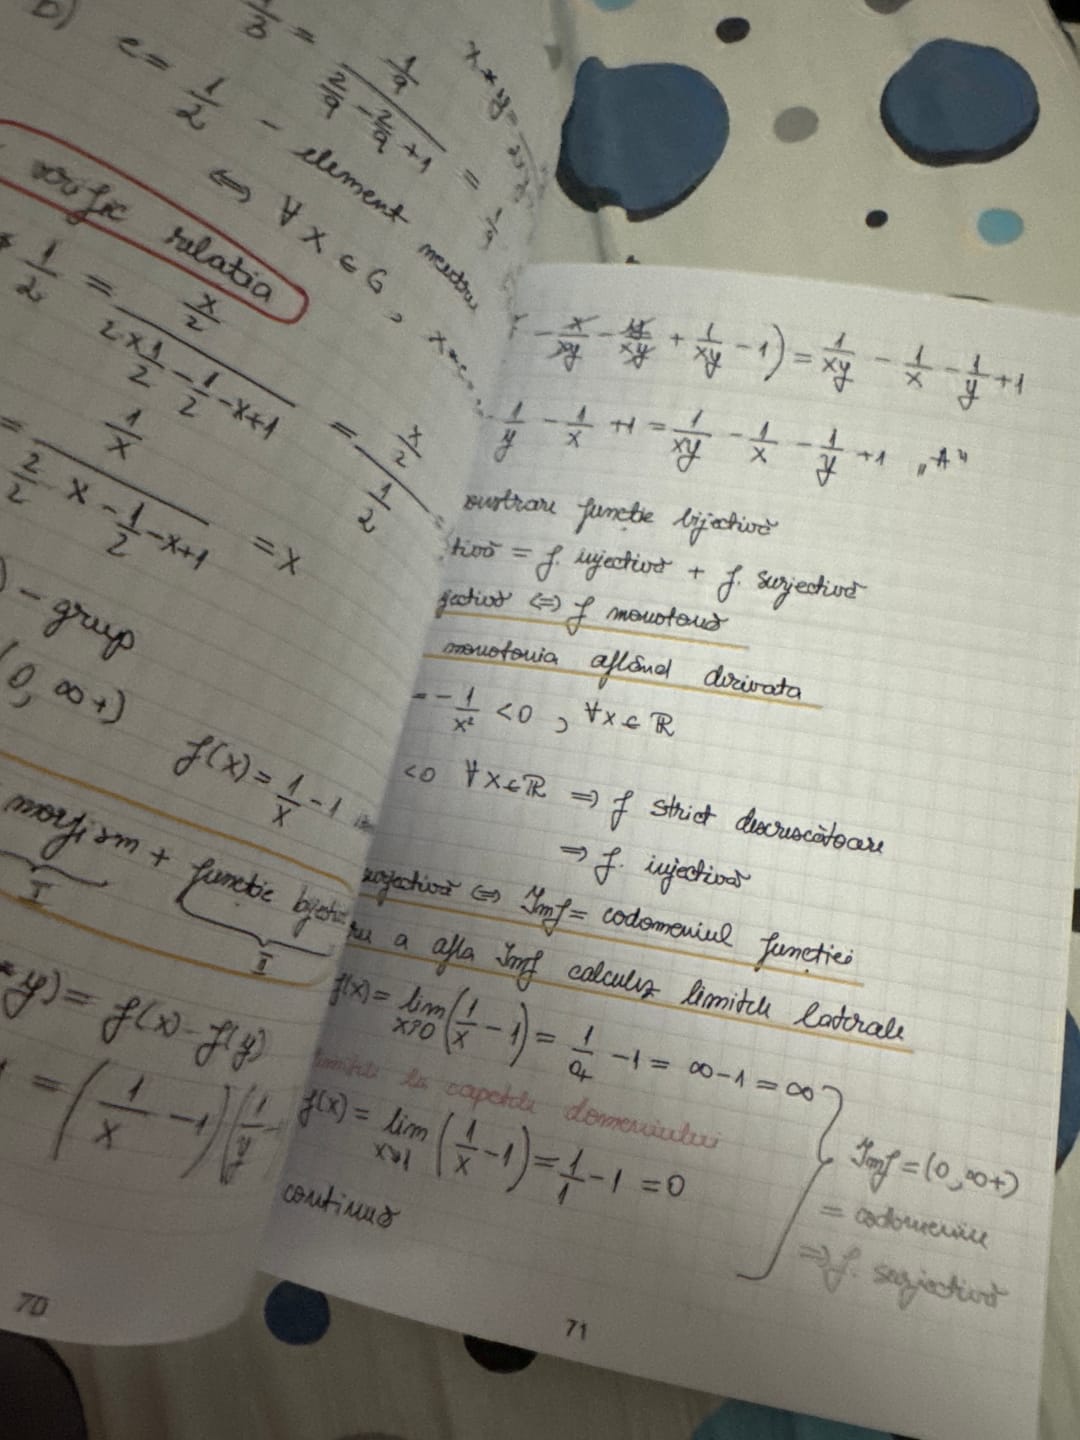 b)
1/3 = (1/9)/(2/9 - 2/9 + 1) = 1/9
x * y =
e = 1/2 - element neutru
⇔ ∀ x ∈ G, x * e
verific relația
* 1/2 = (x/2)/(2·x·1/2 - 1/2 - x + 1) = (x/2)/(1/2)
= (1/x)/(2/2 x - 1/2 - x + 1) = x
) - grup
(0, ∞+)
f(x) = 1/x - 1
morfism + funcție bijectiv
I
II
* y) = f(x) - f(y)
1 = (1/x - 1)(1/y -
70
- x/xy - y/xy + 1/xy - 1) = 1/xy - 1/x - 1/y + 1
1/y - 1/x + 1 = 1/xy - 1/x - 1/y + 1 „A"
onstrare funcție bijectivă
tivă = f. injectivă + f. surjectivă
jectivă ⇔ f monotonă
monotonia aflând derivata
= - 1/x² < 0 , ∀ x ∈ ℝ
< 0 ∀ x ∈ ℝ ⇒ f strict descrescătoare
⇒ f. injectivă
surjectivă ⇔ Imf = codomeniul funcției
ru a afla Imf calculez limitele laterale
f(x) = lim x→0 (1/x - 1) = 1/0+ - 1 = ∞ - 1 = ∞
limitele la capetele domeniului
f(x) = lim x→1 (1/x - 1) = 1/1 - 1 = 0
continuă
Imf = (0, ∞+)
= codomeniu
⇒ f. surjectivă
71